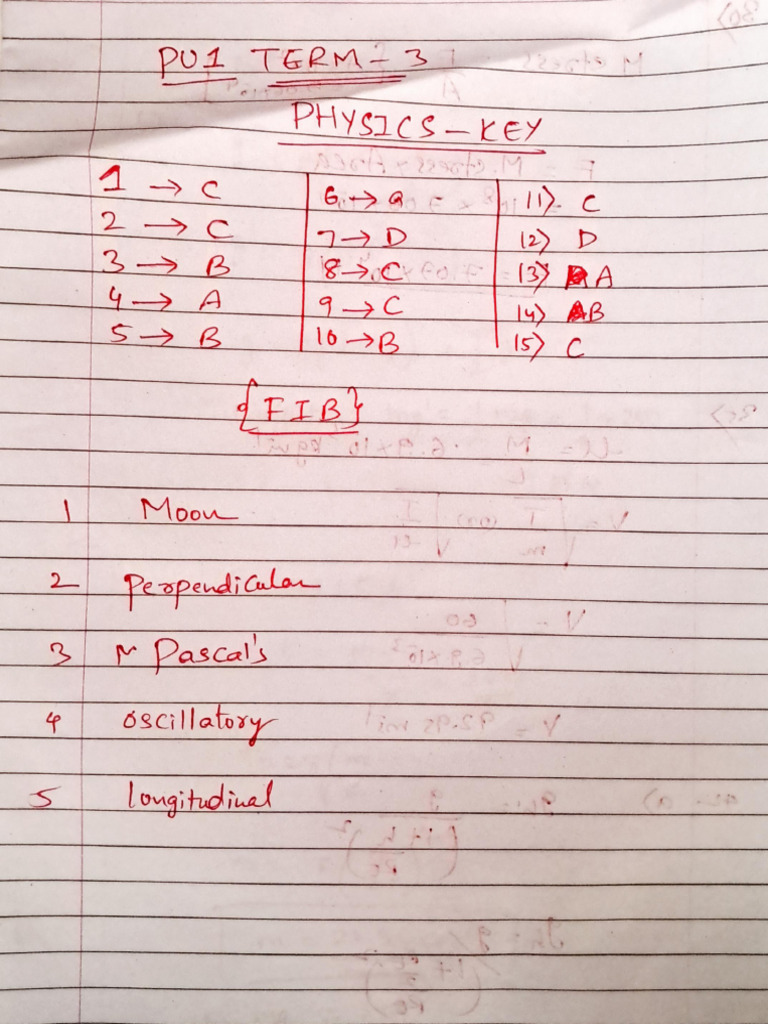 PU1 TERM - 3
PHYSICS - KEY
1 → C
2 → C
3 → B
4 → A
5 → B
6 → a
7 → D
8 → C
9 → C
10 → B
11) C
12) D
13) A
14) B
15) C
{FIB}
1 Moon
2 Perpendicular
3 Pascal's
4 oscillatory
5 longitudinal